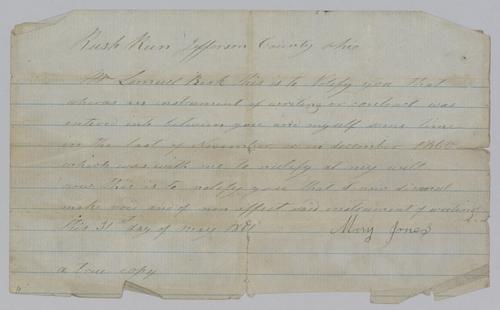 Rush Run Jefferson County Ohio
Mr Samuel Beck this is to Notify you that
whereas an instrument of writing or contract was
entered into between you and myself some time
in the last of November or in december 1860
which was with me to nulify at my will
now this is to notify you that I now
make void and of non effect said instrument of writing
this 31st day of may 1861 Mary Jones
a true copy